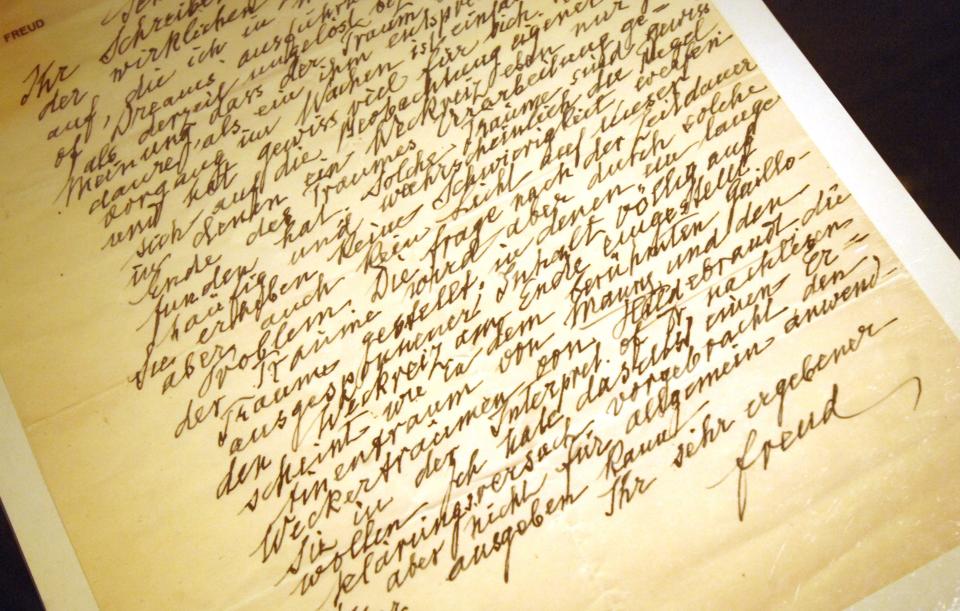 FREUD
Ihr Schreiben
der wirklichen
auf, die ich in
of Dreams ausführ
als derzeit ungelöst
Meinung, dass der Traum
dauert, als ein ihm entspre
vorgang im Wachen ist einfa
und hat gewiss viel für sich
sich auf die Beobachtung eigener
in denen ein Weckreiz eben nur
Ende des Traumes Verarbeitung ge=
funden hat. Solche Träume sind gewiss
häufig und wahrscheinlich die Regel
Sie keine Schwierigkeit, werfen
aber auch kein Licht auf unser
Problem. Die Frage nach der Zeitdauer
der Träume wird aber durch solche
Träume gestellt, in denen ein lange
ausgesponnener Inhalt völlig auf
den Weckreiz am Ende eingestellt
scheint wie in dem berühmten Guillo-
tinentraum von Maury und den
Weckerträumen von Hildebrandt, die
Sie in der Interpret. of Dr nachlesen
wollen. Ich habe daselbst einen Er=
klärungsversuch vorgebracht, den
aber nicht für allgemein anwend-
ausgeben kann
Ihr sehr ergebener
Freud